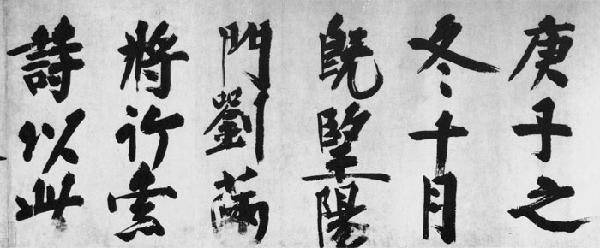 庚子之
冬十月
既朢陽
門劉滿
將行索
詩以此